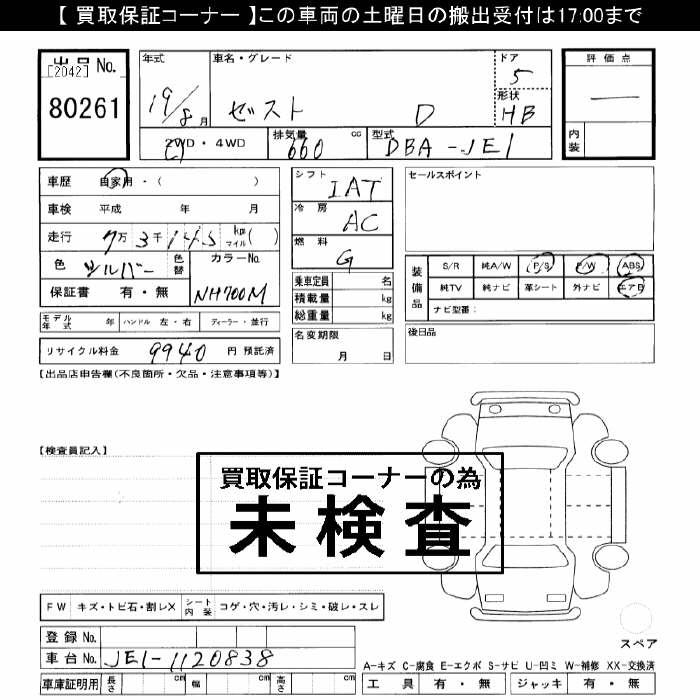 【 買取保証コーナー 】この車両の土曜日の搬出受付は17:00まで
出品No.
[2042]
80261
年式
19/8月
車名・グレード
ゼスト D
ドア
5
形状
HB
評価点
—
内装
2WD・4WD
排気量
660 cc
型式
DBA-JE1
車歴 自家用・( )
車検 平成 年 月
走行 7万3千145 km マイル( )
色 シルバー 色替
カラーNo.
NH700M
保証書 有・無
モデル年式 年 ハンドル 左・右 ディーラー・並行
リサイクル料金 9940 円 預託済
シフト
IAT
冷房
AC
燃料
G
乗車定員 名
積載量 kg
総重量 kg
名変期限
月 日
セールスポイント
装備品
S/R 純A/W P/S P/W ABS
純TV 純ナビ 革シート 外ナビ エアB
ナビ型番:
後日品
【出品店申告欄(不良箇所・欠品・注意事項等)】
【検査員記入】
買取保証コーナーの為
未検査
FW キズ・トビ石・割レX シート内装 コゲ・穴・汚レ・シミ・破レ・スレ
登録No.
車台No. JE1-1120838
車庫証明用 長さ cm 幅 cm 高さ cm
スペア
A-キズ C-腐食 E-エクボ S-サビ U-凹ミ W-補修 XX-交換済
工具 有・無 ジャッキ 有・無